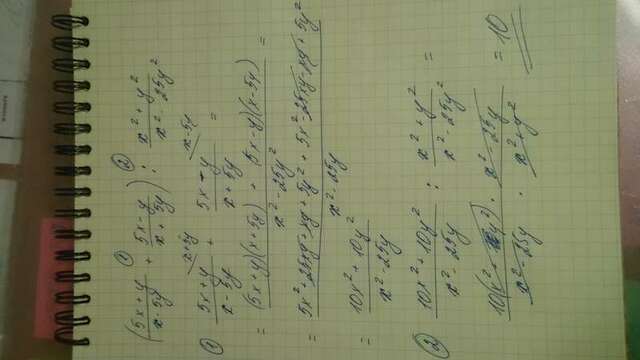 ① ②
((5x+y)/(x-5y) + (5x-y)/(x+5y)) : (x²+y²)/(x²-25y²)
① (5x+y)/(x-5y) \x+5y + (5x-y)/(x+5y) \x-5y =
= ((5x+y)(x+5y) + (5x-y)(x-5y))/(x²-25y²) =
= (5x²+25xy+xy+5y²+5x²-25xy-xy+5y²)/(x²-25y)
= (10x²+10y²)/(x²-25y)
② (10x²+10y²)/(x²-25y) : (x²+y²)/(x²-25y²) =
(10(x²+y²) · x²-25y)/(x²-25y · x²+y²) = 10